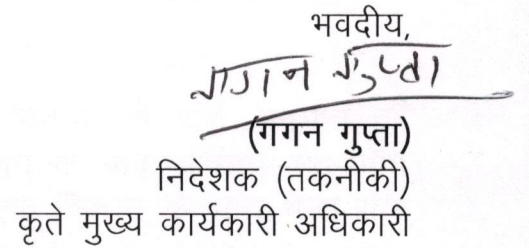 भवदीय,
गगन गुप्ता
(गगन गुप्ता)
निदेशक (तकनीकी)
कृते मुख्य कार्यकारी अधिकारी